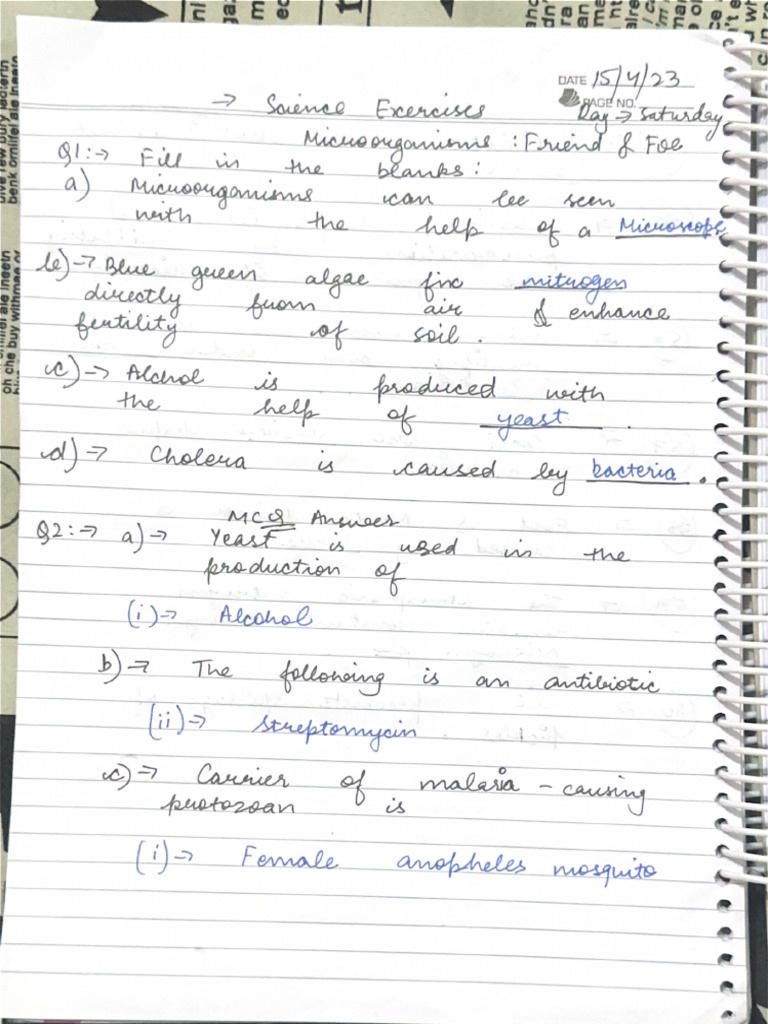 DATE 15/4/23
PAGE NO.
→ Science Exercises Day → Saturday
Microorganisms : Friend & Foe
Q1:→ Fill in the blanks:
a) Microorganisms can be seen
with the help of a Microscope
b)→ Blue green algae fix nitrogen
directly from air & enhance
fertility of soil.
c)→ Alchol is produced with
the help of yeast.
d)→ Cholera is caused by bacteria.
MCQ Answer
Q2:→ a)→ Yeast is used in the
production of
(i)→ Alcohol
b)→ The following is an antibiotic
(ii)→ streptomycin.
c)→ Carrier of malaria - causing
protozoan is
(i)→ Female anopheles mosquito